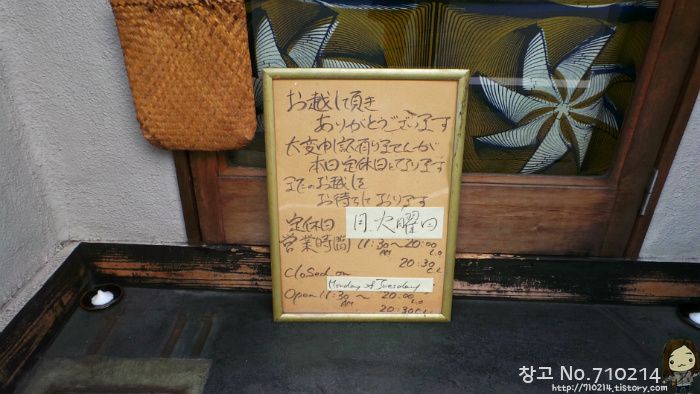 お越し頂き
ありがとうございます
大変申し訳有りませんが
本日定休日となります
またのお越しを
お待ちしております
定休日 月.火曜日
営業時間 11:30〜20:00
AM L.O
20:30
CL
Closed on
Monday & Tuesday
Open 11:30〜20:00
AM L.O
20:30CL
창고 No.710214
http://710214.tistory.com